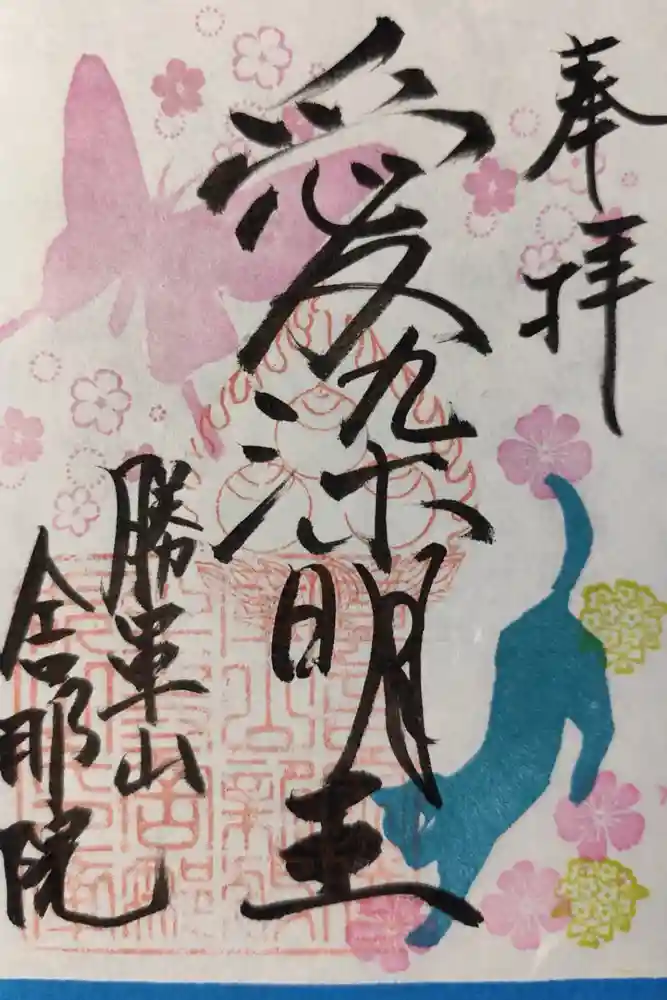 奉拝
愛染明王
勝軍山
舎那院